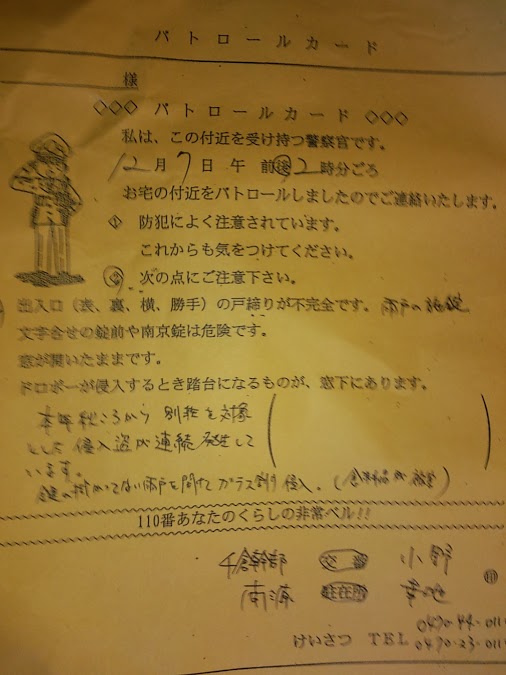 パトロールカード
様
◇◇◇ パトロールカード ◇◇◇
私は、この付近を受け持つ警察官です。
12月7日午前後2時分ごろ
お宅の付近をパトロールしましたのでご連絡いたします。
防犯によく注意されています。
これからも気をつけてください。
次の点にご注意下さい。
出入口（表、裏、横、勝手）の戸締りが不完全です。 雨戸の施錠
文字合せの錠前や南京錠は危険です。
窓が開いたままです。
ドロボーが侵入するとき踏台になるものが、窓下にあります。
本年秋ころから 別荘を対象
とした侵入盗が連続発生して
います。
鍵の掛かってない雨戸を開けてガラス割り侵入。
110番あなたのくらしの非常ベル!!
千倉幹部 交番 小野
南海 駐在所
0470-44-011
けいさつ TEL 0470-23-011